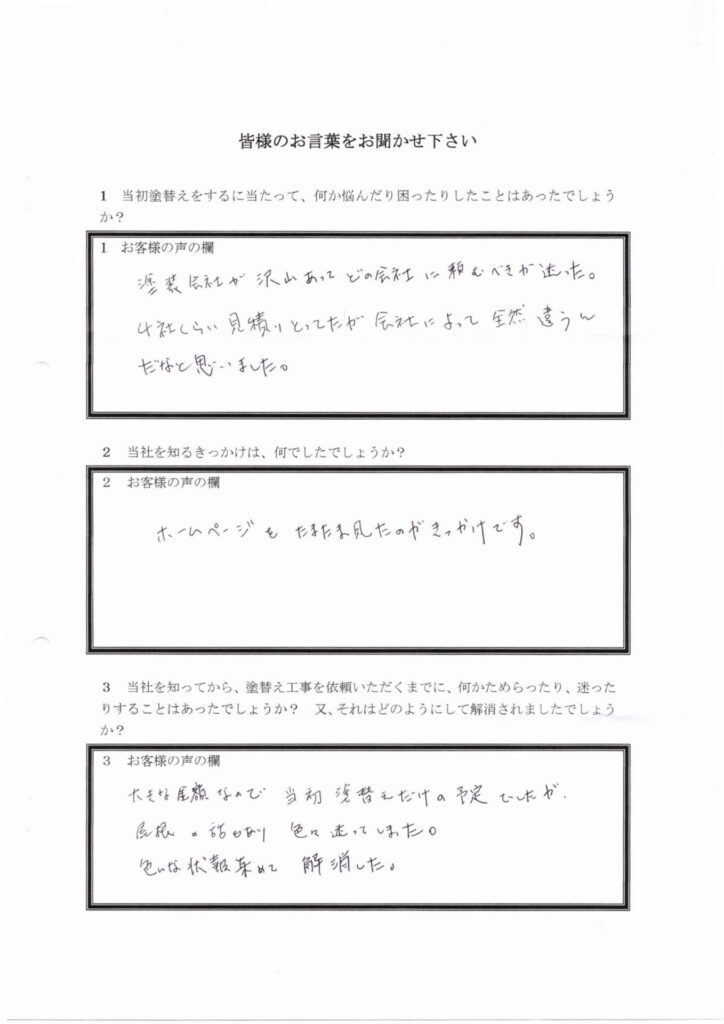 皆様のお言葉をお聞かせ下さい
1 当初塗替えをするに当たって、何か悩んだり困ったりしたことはあったでしょう
か?
1 お客様の声の欄
塗装会社が沢山あってどの会社に頼むべきか迷った。
4社くらい見積りとってたが会社によって全然違うん
だなと思いました。
2 当社を知るきっかけは、何でしたでしょうか?
2 お客様の声の欄
ホームページをたまたま見たのがきっかけです。
3 当社を知ってから、塗替え工事を依頼いただくまでに、何かためらったり、迷った
りすることはあったでしょうか? 又、それはどのようにして解消されましたでしょう
か?
3 お客様の声の欄
大きな金額なので 当初塗替えだけの予定でしたが、
屋根の話もあり 色々迷ってしまった。
色々な状報集めて 解消した。